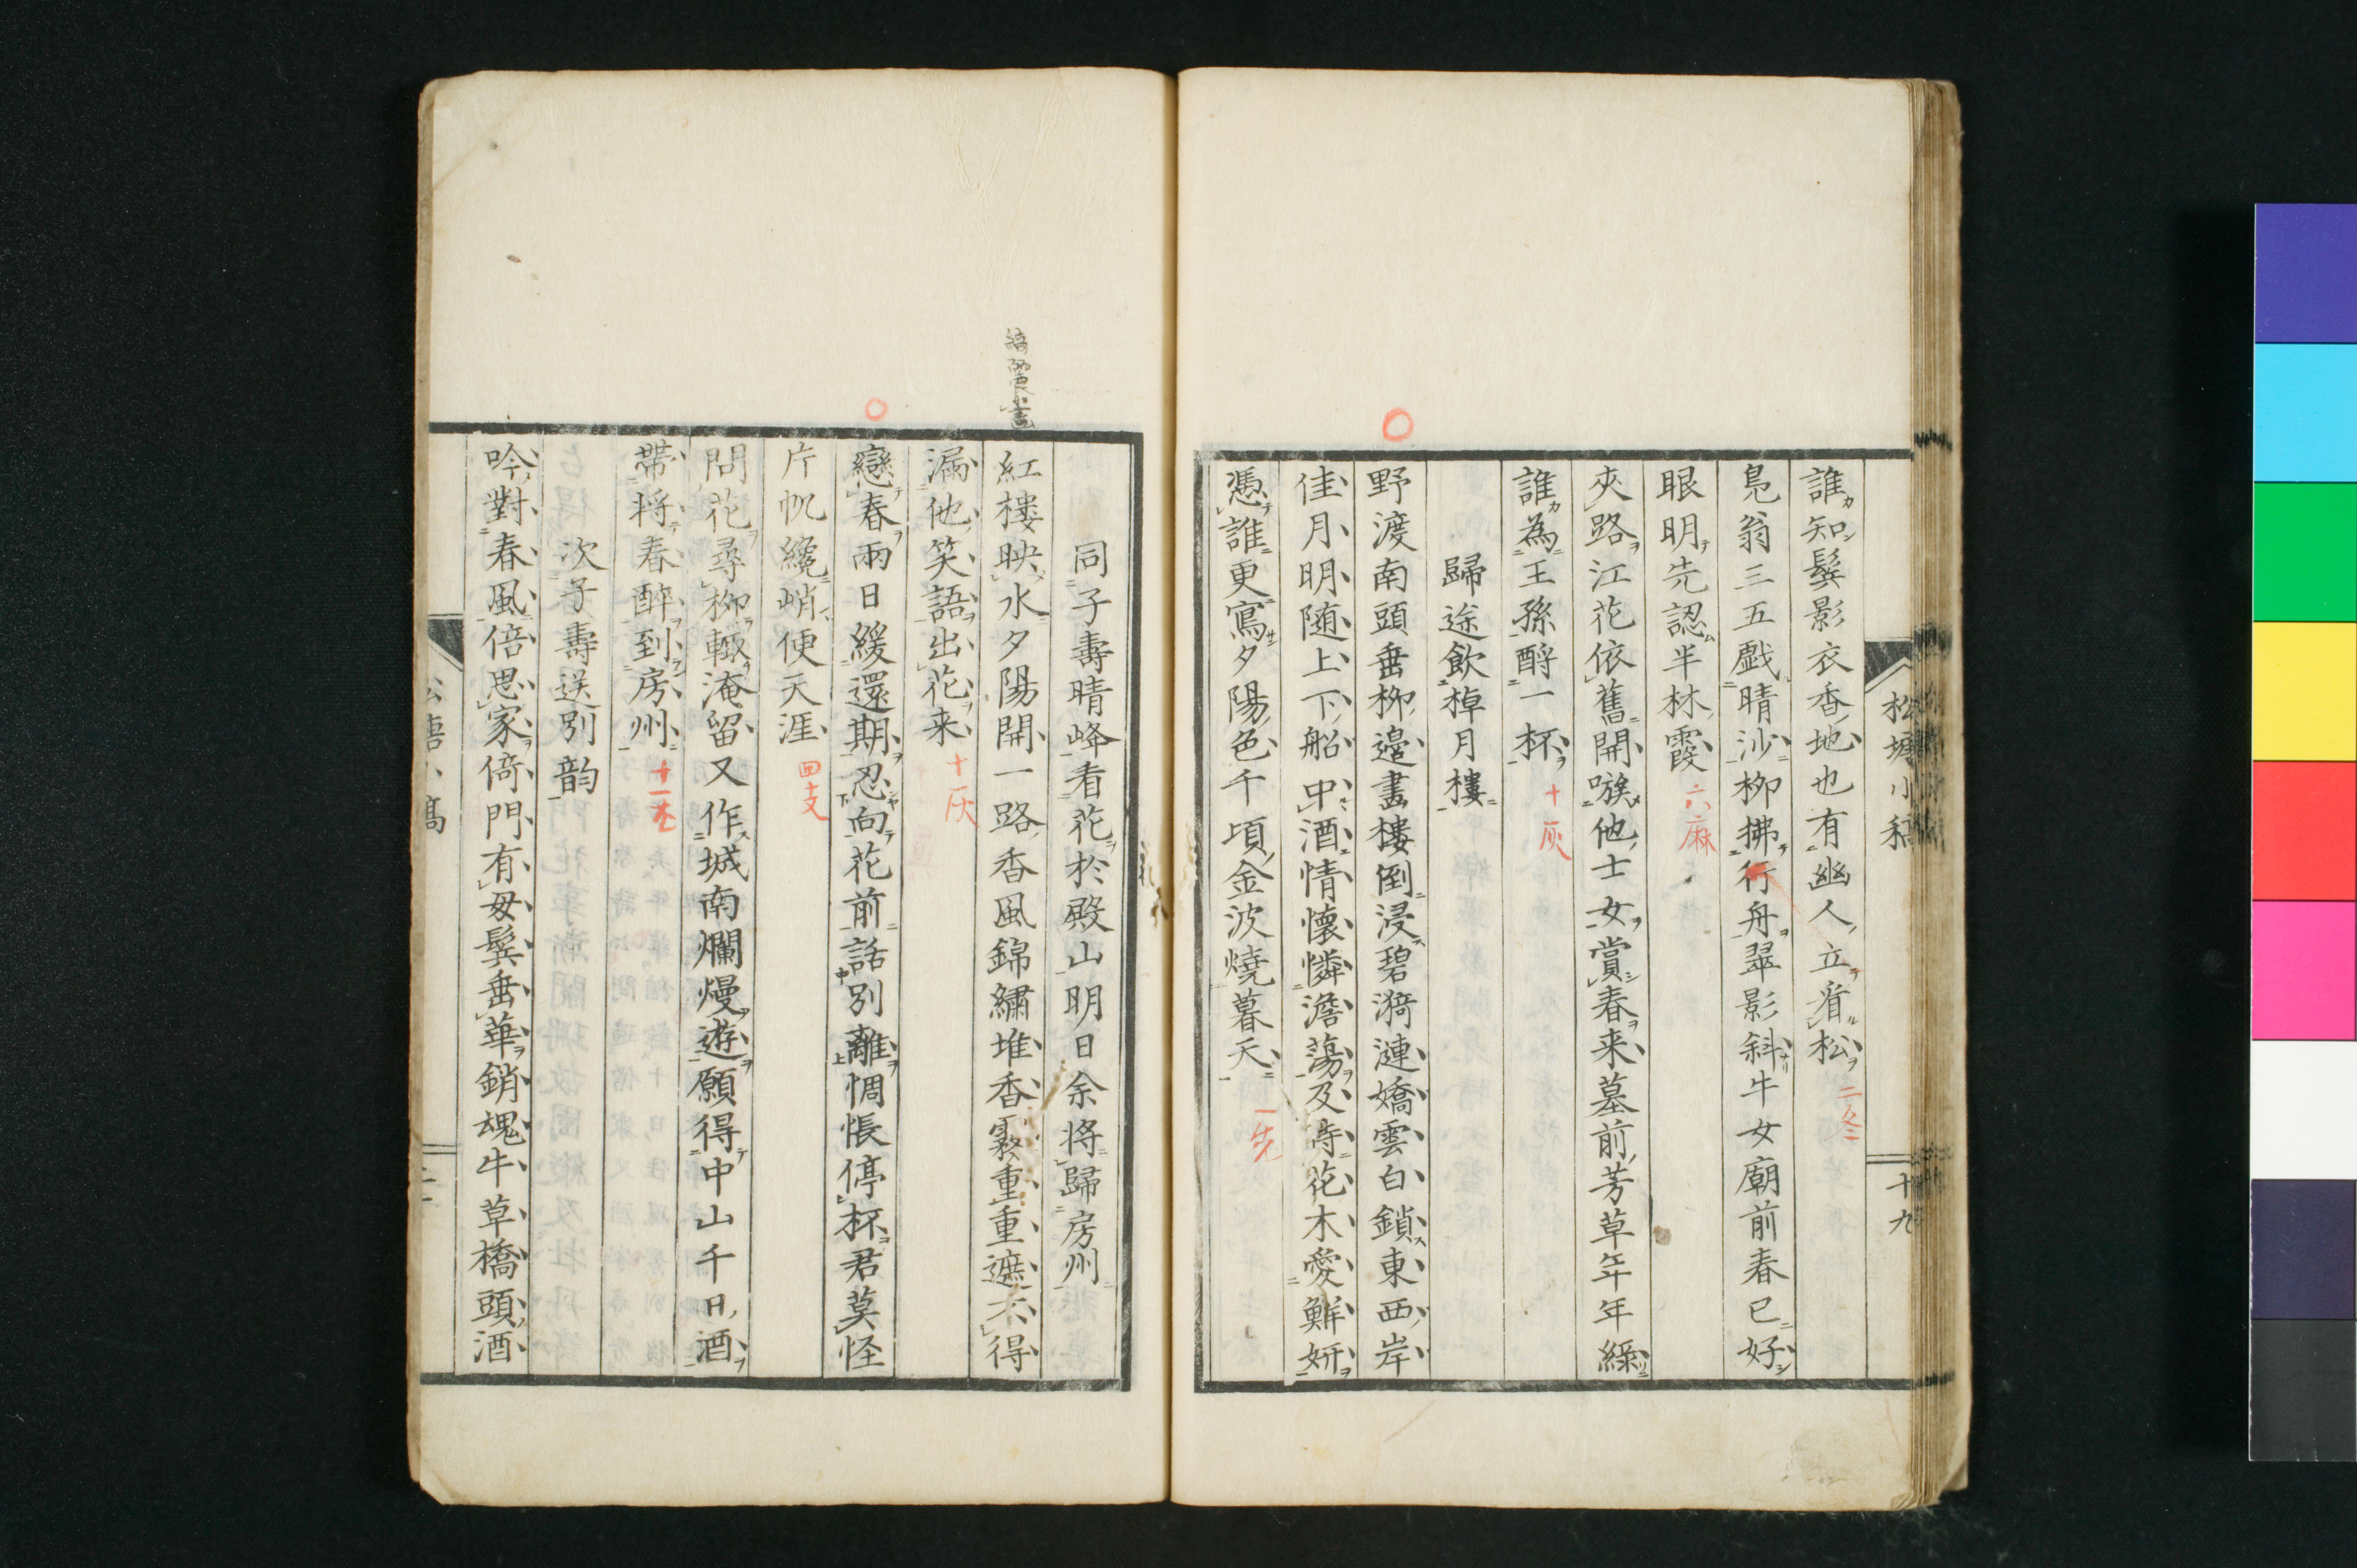 松塘小稿
十九
誰知鬂影衣香地也有幽人立看松
二冬
鳬翁三五戯晴沙柳拂行舟翠影斜牛女廟前春已好
眼明先認半林霞
六麻
夾路江花依舊開嗾他士女賞春来墓前芳草年年緑
誰為王孫酹一杯
十灰
歸途飲棹月樓
野渡南頭垂柳邉畫樓倒浸碧漪漣嬌雲白鎖東西岸
佳月明随上下船中酒情懷憐澹蕩及時花木愛鮮妍
憑誰更寫夕陽色千頃金波燒暮天
一先
同子壽晴峰看花於殿山明日余将歸房州
紅樓映水夕陽開一路香風錦繡堆香霧重重遮不得
漏他笑語出花来
十灰
戀春兩日緩還期忍向花前話別離惆悵停杯君莫怪
片帆纔峭便天涯
四支
問花尋柳輙淹留又作城南爛熳遊願得中山千日酒
帶将春醉到房州
十一尤
次子壽送別韵
吟對春風倍思家倚門有毋鬂垂華銷魂牛草橋頭酒